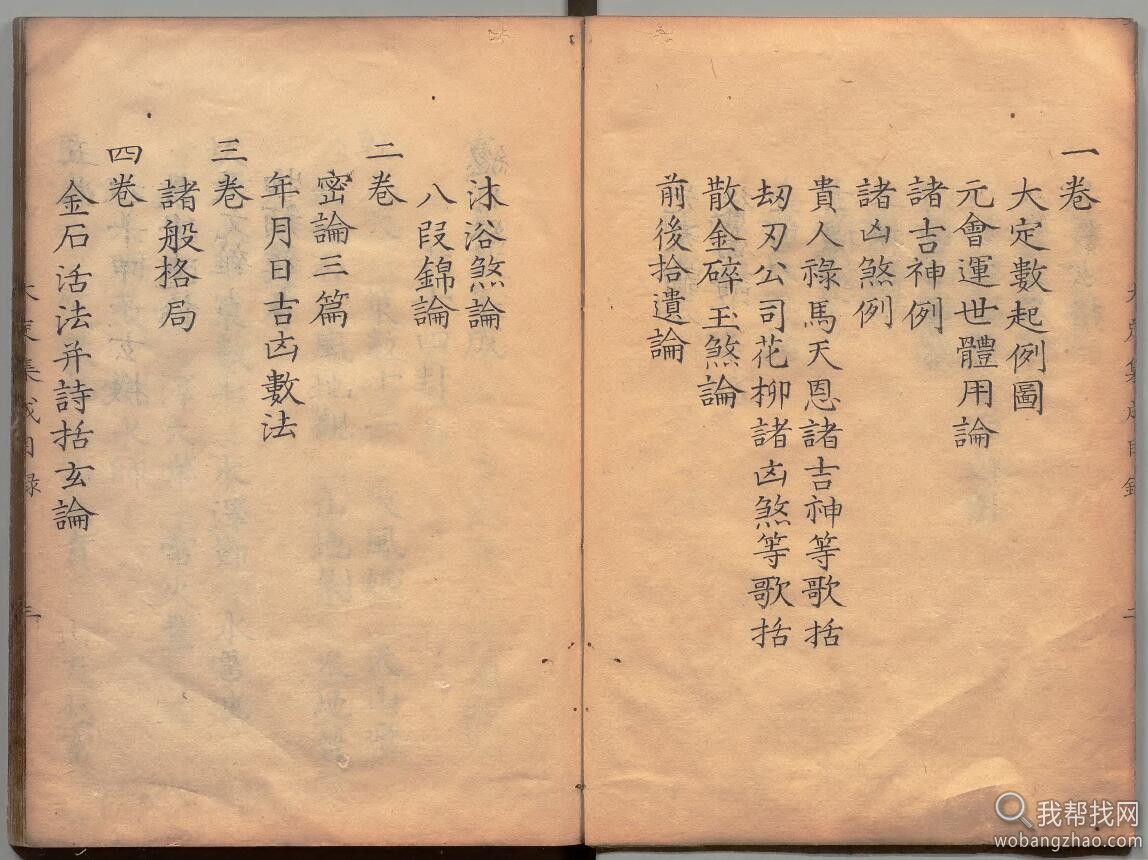 一卷
大定數起例圖
元會運世體用論
諸吉神例
諸凶煞例
貴人祿馬天恩諸吉神等歌括
刼刃公司花柳諸凶煞等歌括
散金碎玉煞論
前後拾遺論
沐浴煞論
八段錦論
二卷
密論三篇
年月日吉凶數法
三卷
諸般格局
四卷
金石活法并詩括玄論
集成目錄
三
我帮找网
wobangzhao.com